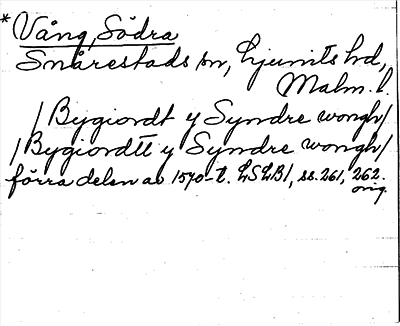 * Vång, Södra
Snårestads sn, Ljunits hd,
Malm. l.
/ Bygiordt y Syndre wongh /
/ Bygiordtt y Syndre wongh /
förra delen av 1570-t. LSLB1, ss. 261, 262.
orig.